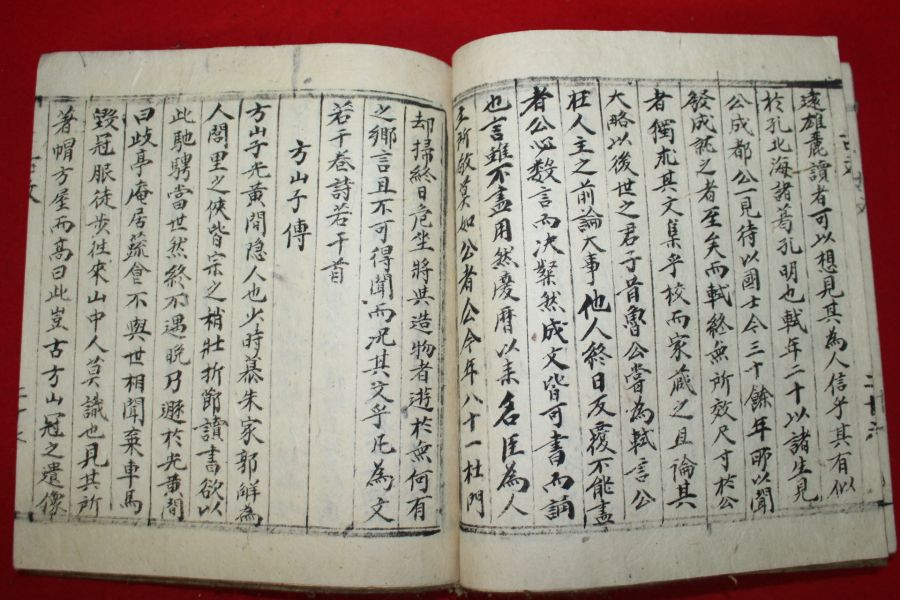 遠雄麗讀者可以想見其為人信乎其有似
於孔北海諸葛孔明也軾年二十以諸生見
公成都公一見待以國士今三十餘年所以開
發成就之者至矣而軾終無所效尺寸於公
者獨求其文集乎校而家藏之且論其
大略以後世之君子昔魯公嘗為軾言公
在人主之前論大事他人終日反覆不能盡
者公必數言而决粲然成文皆可書而誦
也言雖不盡用然慶曆以来名臣為人
主所敬莫如公者公今年八十一杜門
却掃終日危坐將與造物者遊於無何有
之鄉言且不可得聞而况其文乎凡為文
若干卷詩若干首
方山子傳
方山子光黃間隱人也少時慕朱家郭解為
人閭里之俠皆宗之稍壯折節讀書欲以
此馳騁當世然終不遇晚乃遯於光黃間
曰歧亭庵居蔬食不與世相聞棄車馬
毀冠服徒步徃來山中人莫識也見其所
著帽方屋而高曰此豈古方山冠之遺像